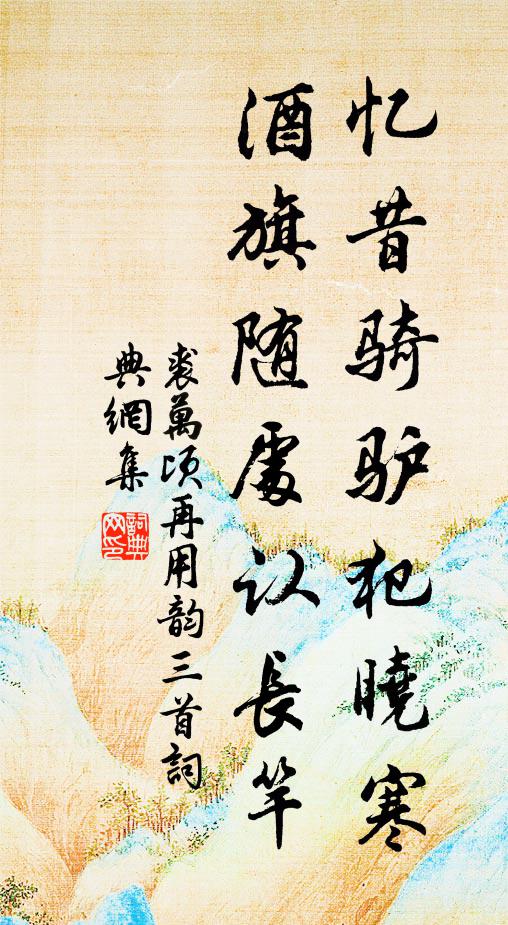 忆昔骑驴犯晓寒
酒旗随處认長竿
裘萬顷再用韵三首詞
典網集
詞典
网印